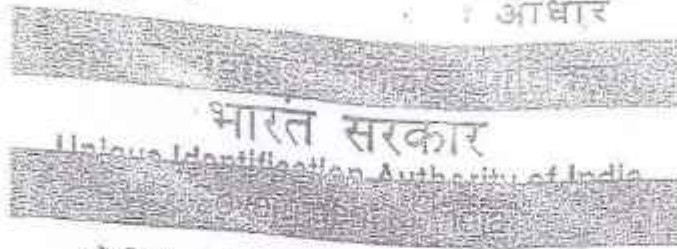 आधार
भारत सरकार
Unique Identification Authority of India